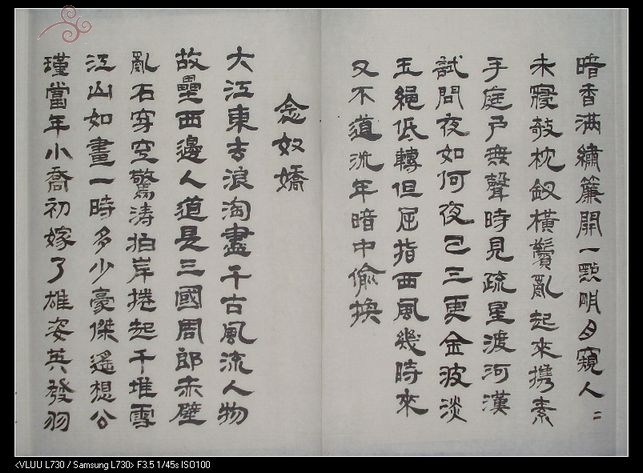 暗香滿繡簾開一點明月窺人〻
未寢敧枕釵橫鬢亂起來攜素
手庭戶無聲時見疏星渡河漢
試問夜如何夜已三更金波淡
玉繩低轉但屈指西風幾時來
又不道流年暗中偷換
念奴嬌
大江東去浪淘盡千古風流人物
故壘西邊人道是三國周郎赤壁
亂石穿空驚濤拍岸捲起千堆雪
江山如畫一時多少豪傑遙想公
瑾當年小喬初嫁了雄姿英發羽
<VLUU L730 / Samsung L730> F3.5 1/45s ISO100